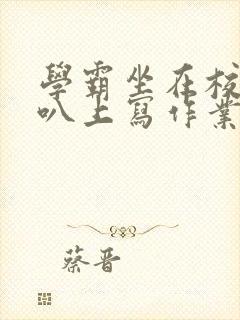 學霸坐在校
叭上寫作業
蔡晋